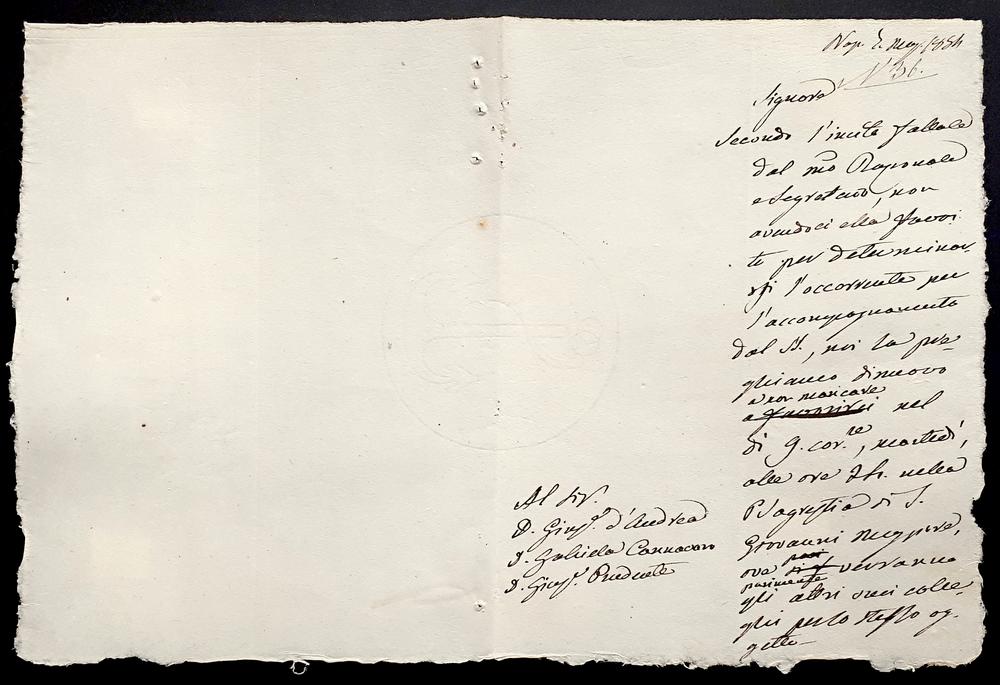 Nap. 5. Mag. 1854
N° 36.
Signore
Secondo l'invito fattole
dal nro Razionale
e Segretario, non
avendoci ella favori
to per determinar
si l'occorrente per
l'accompagnamento
del SS., noi la pre
ghiamo di nuovo
a non mancare
a favorirci nel
dì 9. cor.te, martedì,
alle ore 21. nella
Sagrestia di S.
Giovanni Maggiore,
ove verranno
parimente
gli altri suoi colle
ghi per lo stesso og
getto
Al Sig.
D. Gius.e d'Andrea
D. Gabriele Cannavaro
D. Gius.e Prudente